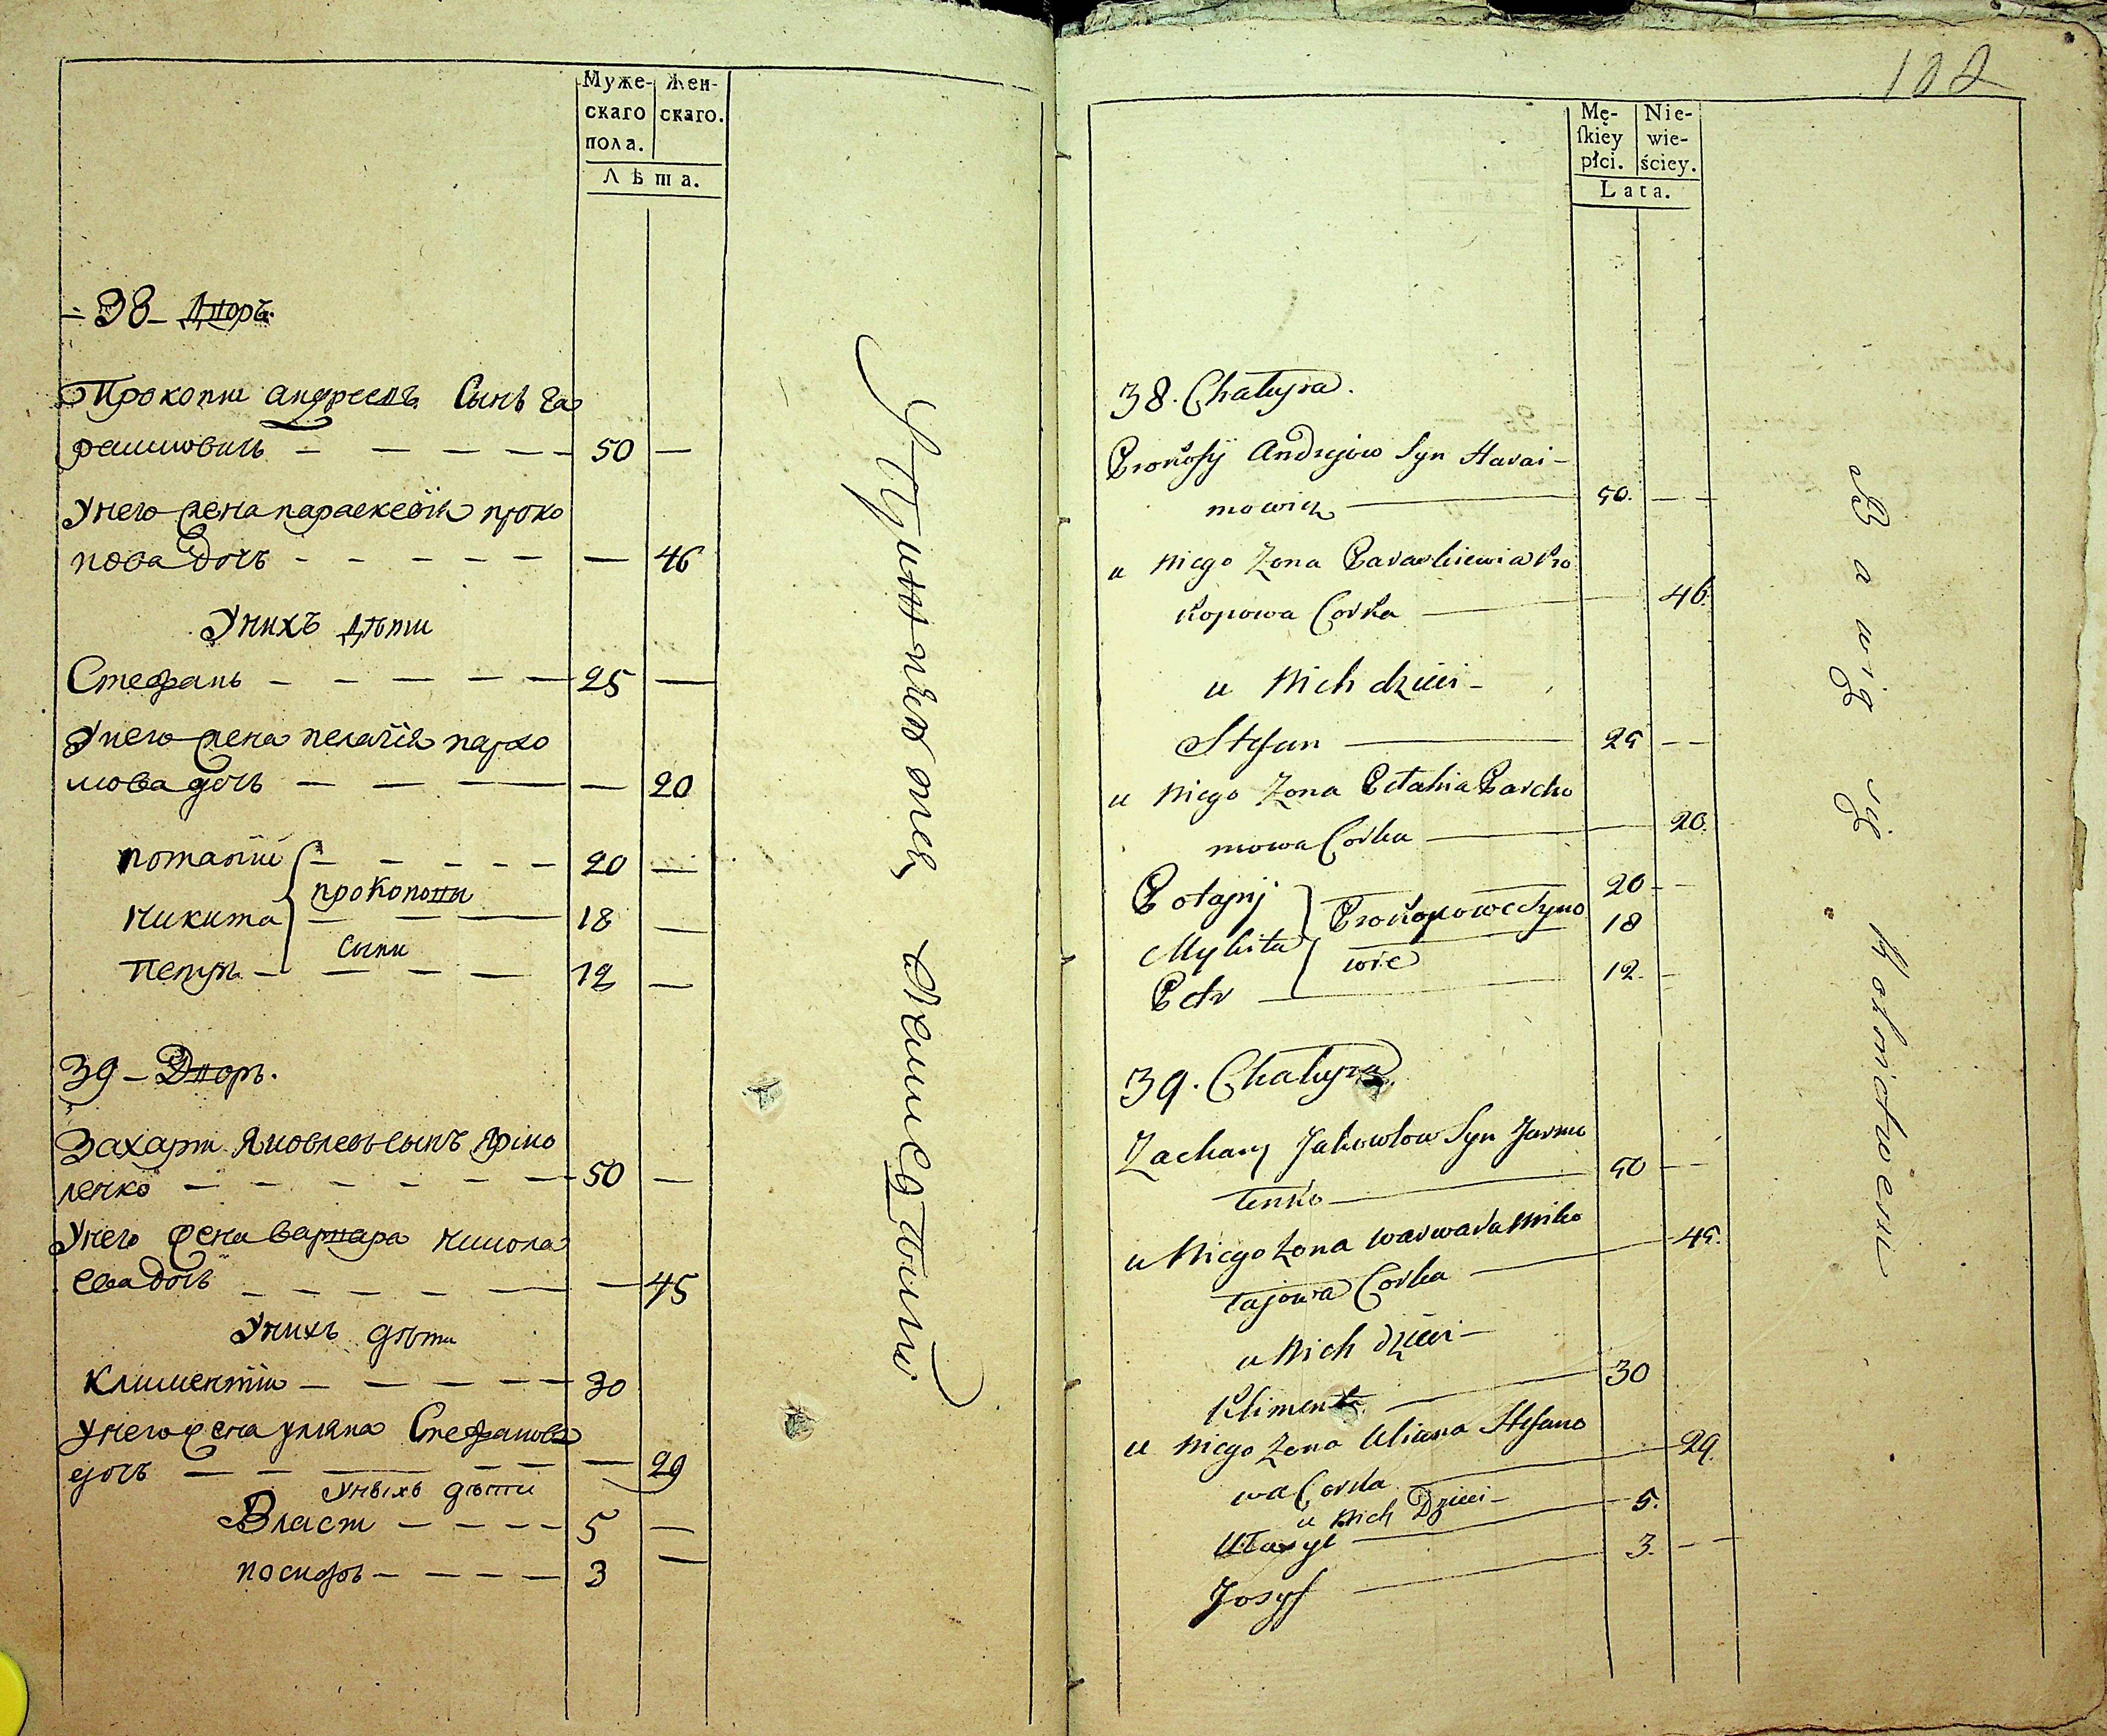 Муже-
скаго
пола.
Жен-
скаго.
Лѣта.
- 38 - Дворъ.
Прокопии андреевъ Сынъ Га
раимовичь - - - - - 50 —
Унего жена параскевїя проко
пова дочь - - - - - — 46
Унихъ дѣти
Стефанъ - - - - - 25 —
Унего жена пелагїя пархо
мова дочь - - - — 20
потапии - - - - - 20 —
прокоповы
никита - - - 18 —
сыни
Петръ - - - - 12 —
39 - Дворъ.
Захарїи Яковлевъ сынъ Ярмо
ленко - - - - - - 50 —
Унего жена варвара никола
ева дочь - - - - - — 45
Унихъ дѣти
климентїи - - - - - 30
Унего жена уляна Стефанова
дочь - - - - - — 29
Унихъ дѣти
Власїи - - - - 5 —
иосифъ - - - - 3 —
102
Mę-
ſkiéy
płci.
Nie-
wie-
ściey.
Lata.
38. Chałupa.
Prokofij Andrejow Syn Harai-
mowicz 50. - -
u Niego Zona Parawkiewia Pro
kopowa Corka 46.
u Nich dzieci -
Stefan 25 - -
u Niego Zona Pelahia Parcho
mowa Corka 20.
Potapij 20 - -
Prokopowe Syno
Mykita 18
wie
Petr 12. -
39. Chałupa.
Zachary Jakowlow Syn Jarmo
lenko 50 - -
u Niego Zona Warwara Miko
łajowa Corka 45.
u Nich dzieci -
Kliment 30
u Niego Zona Uliana Stefano
wa Corka 29.
u Nich Dzieci -
5.
Josyf 3. - -